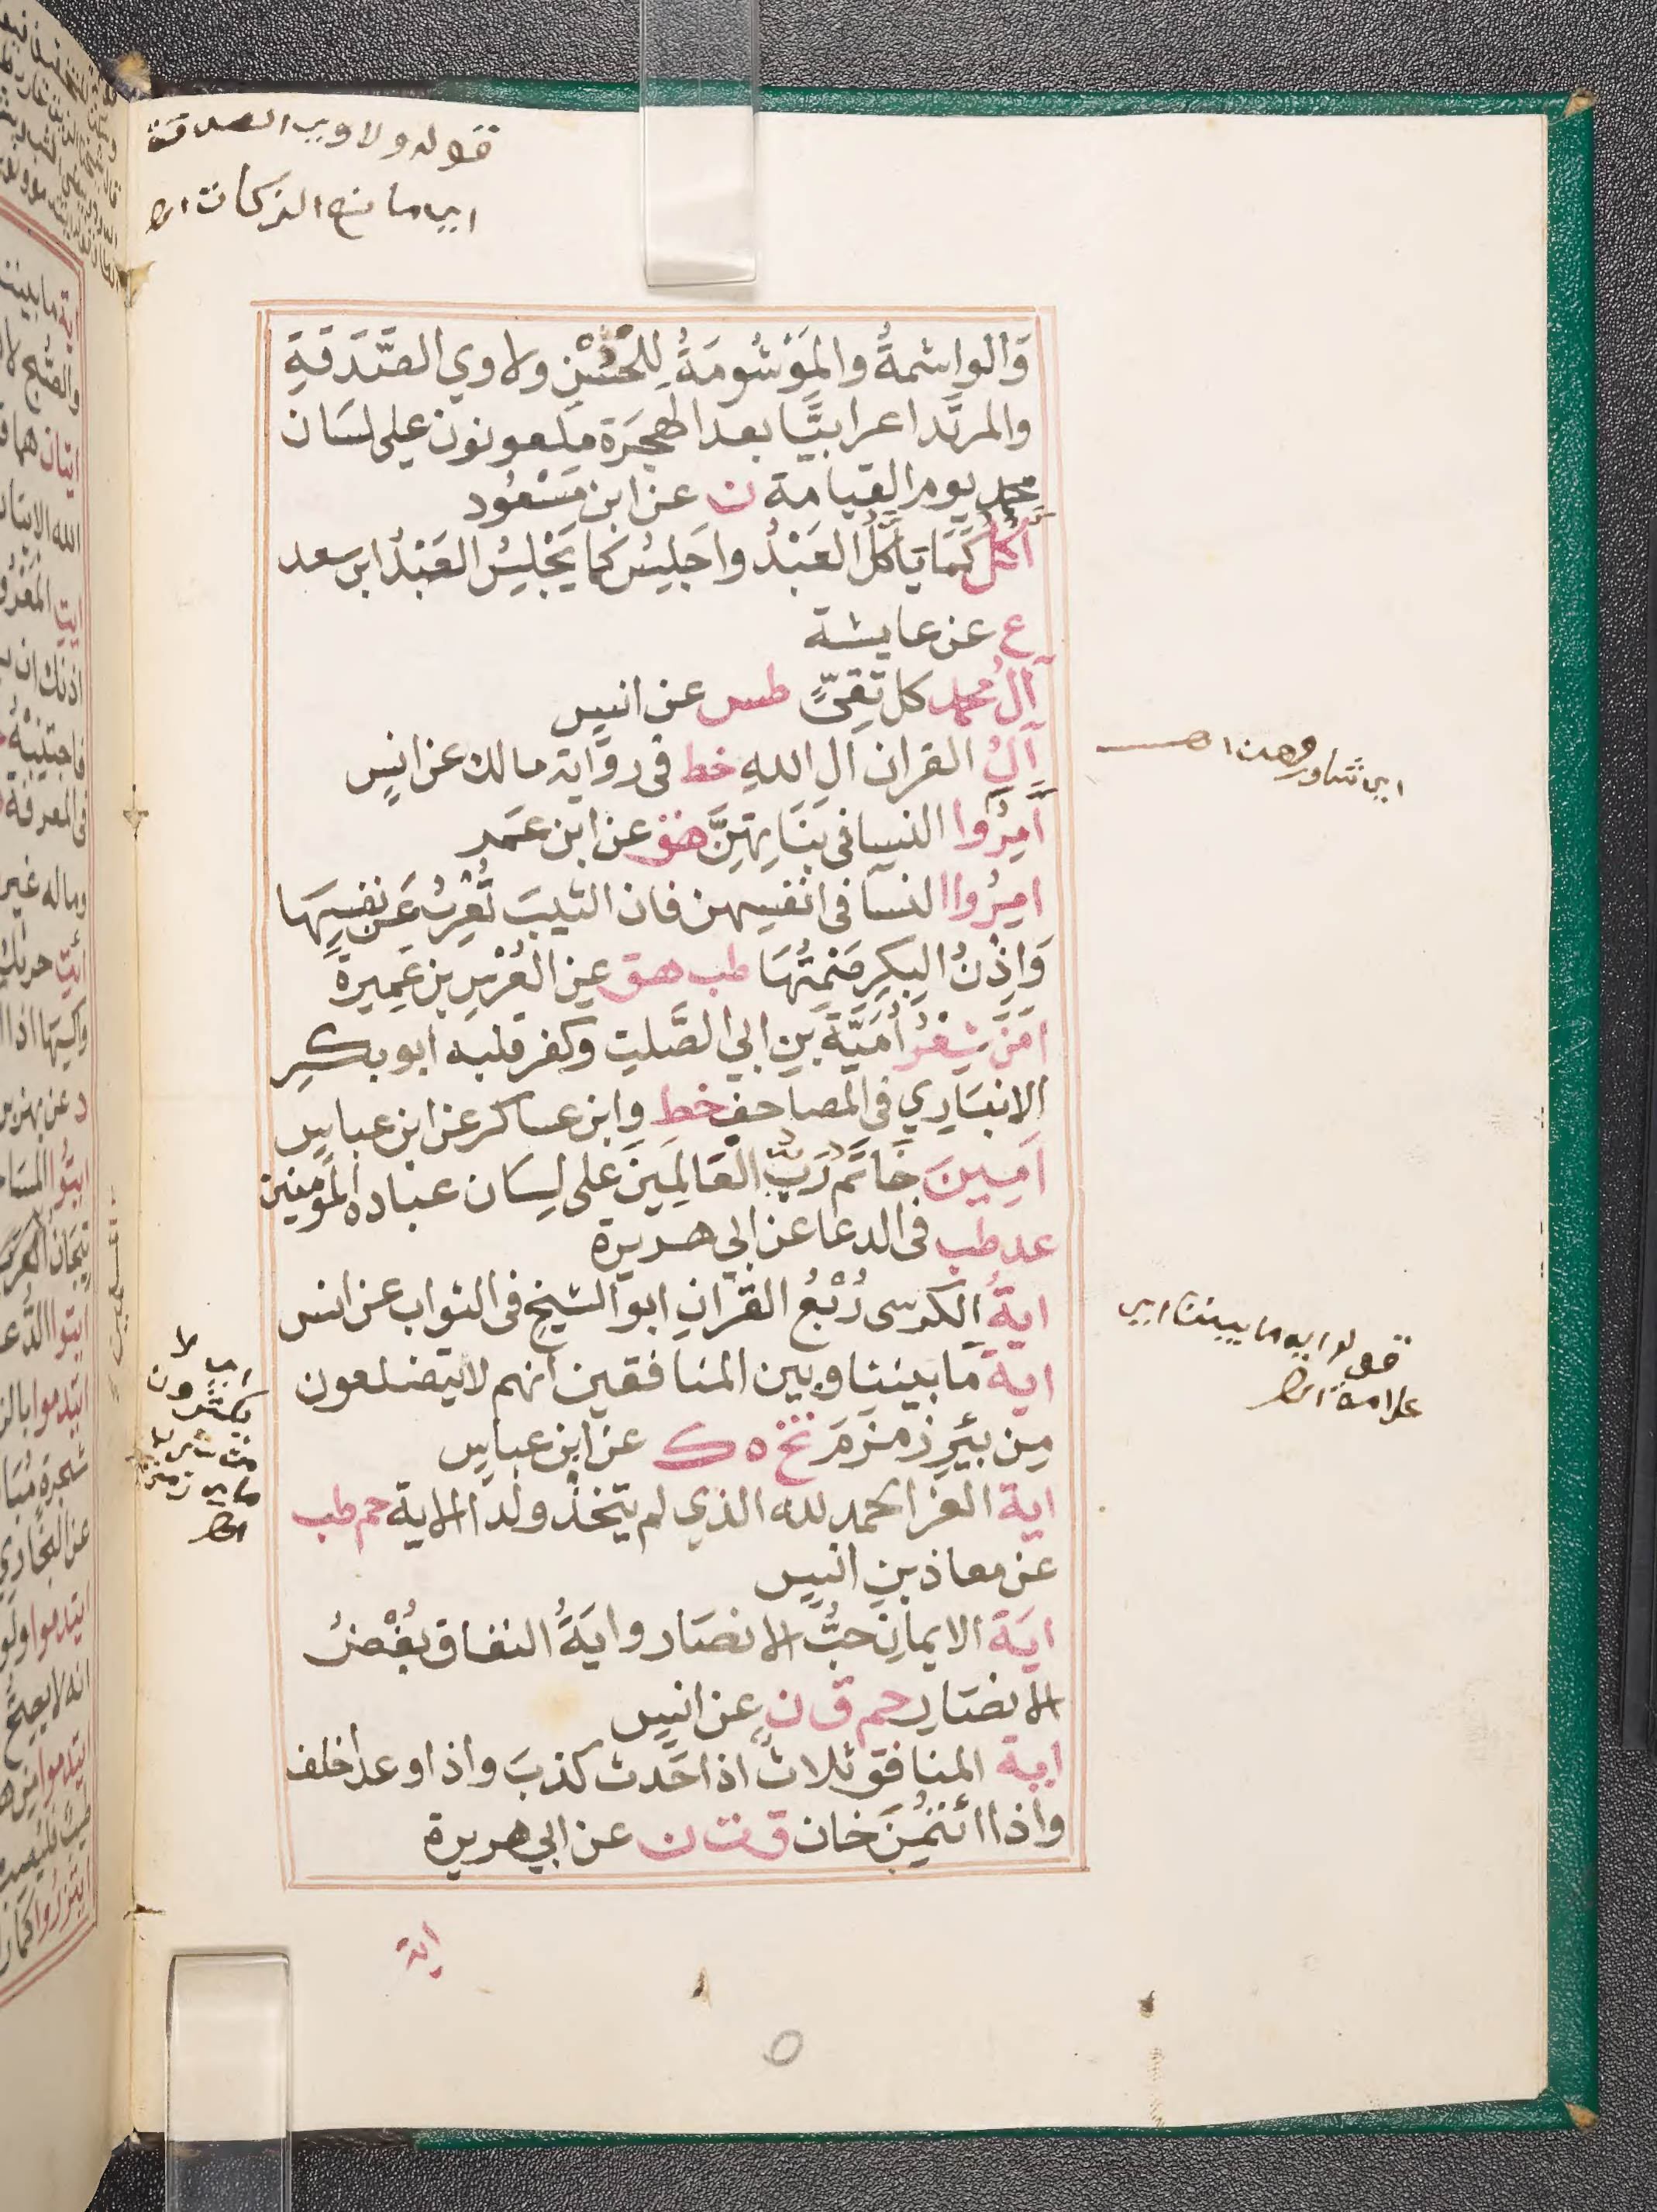 قوله ولاوي الصدقة
اي مانع الزكات اه
وَالواشمةُ والمَوْشُومَةُ لِلحُسْنِ ولاوي الصَّدَقةِ
والمرتَد اعرابيًّا بعد الهجَرَة ملعونون على لسَان
محمد يوم القيامة ن عن ابن مَسْعُود
آكُلُ كَمَا يَأكُلُ العَبْدُ واجَلِسُ كما يَجْلِسُ العَبْدُ ابن سعد
ع عن عايشة
آلُ محمد كل تَقِيٍّ طس عن انس
آلُ القران ال اللهِ خط فى رواية مالك عن انسٍ
آمِرُوا النسا فى بَنَاتِهِنَّ هق عن ابن عمَر
امِرُوا النسآ فى انفسِهن فان الثيبَ تُعْرِبُ عَن نفسِهَا
وَاِذْنُ البِكرِ صَمْتُهَا طب هق عن العُرْسِ بن عَمِيرة
امَنَ شِعْرُ اُمَيَّةَ بن ابي الصَّلتِ وكفر قلبه ابو بكر
الانبَاري فى المصاحف خط وابن عساكر عن ابن عباس
آمِينَ خَاتَم رَبِّ العَالمِينَ على لِسَان عباده المؤمنين
عد طب فى الدعا عن ابي هريرة
ايةُ الكرسى رُبْعُ القرَانِ ابو الشيخ فى الثواب عن انس
اية مَا بيننا وبين المنافقين انهم لا يتضلعون
مِن بئَرِ زمزمَ تخ ه ك عن ابن عباس
اية العز الحمد لله الذي لم يتخذ ولدا الاية حم طب
عن معاذ بن انس
ايَة الايمان حبُّ الانصَار وايَةُ النفاق بُغْضُ
الانصَارِ حم ق ن عن انس
اية المنافق ثلاث اذا حَدث كذبَ واذا وعد اخلف
واذا ائتُمِنَ خان ق ت ن عن ابي هريرة
اية
اي شاوروهن اهـ
قوله ايه ما بيننا اي
علامة اه
اي لا
يكثرون
من شرب
ماء زمزم
اه